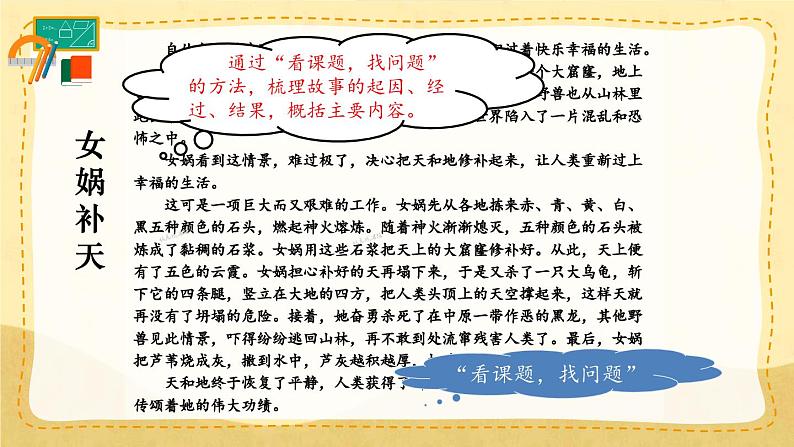 女娲补天
通过“看课题，找问题”
的方法，梳理故事的起因、经
过、结果，概括主要内容。
过着快乐幸福的生活。
个大窟窿，地上
野兽也从山林里
世界陷入了一片混乱和恐
怖之中。
女娲看到这情景，难过极了，决心把天和地修补起来，让人类重新过上
幸福的生活。
这可是一项巨大而又艰难的工作。女娲先从各地拣来赤、青、黄、白、
黑五种颜色的石头，燃起神火熔炼。随着神火渐渐熄灭，五种颜色的石头被
炼成了黏稠的石浆。女娲用这些石浆把天上的大窟窿修补好。从此，天上便
有了五色的云霞。女娲担心补好的天再塌下来，于是又杀了一只大乌龟，斩
下它的四条腿，竖立在大地的四方，把人类头顶上的天空撑起来，这样天就
再没有了坍塌的危险。接着，她奋勇杀死了在中原一带作恶的黑龙，其他野
兽见此情景，吓得纷纷逃回山林，再不敢到处流窜残害人类了。最后，女娲
把芦苇烧成灰，撒到水中，芦灰越积越厚，
天和地终于恢复了平静，人类获得了
传颂着她的伟大功绩。
“看课题，找问题”